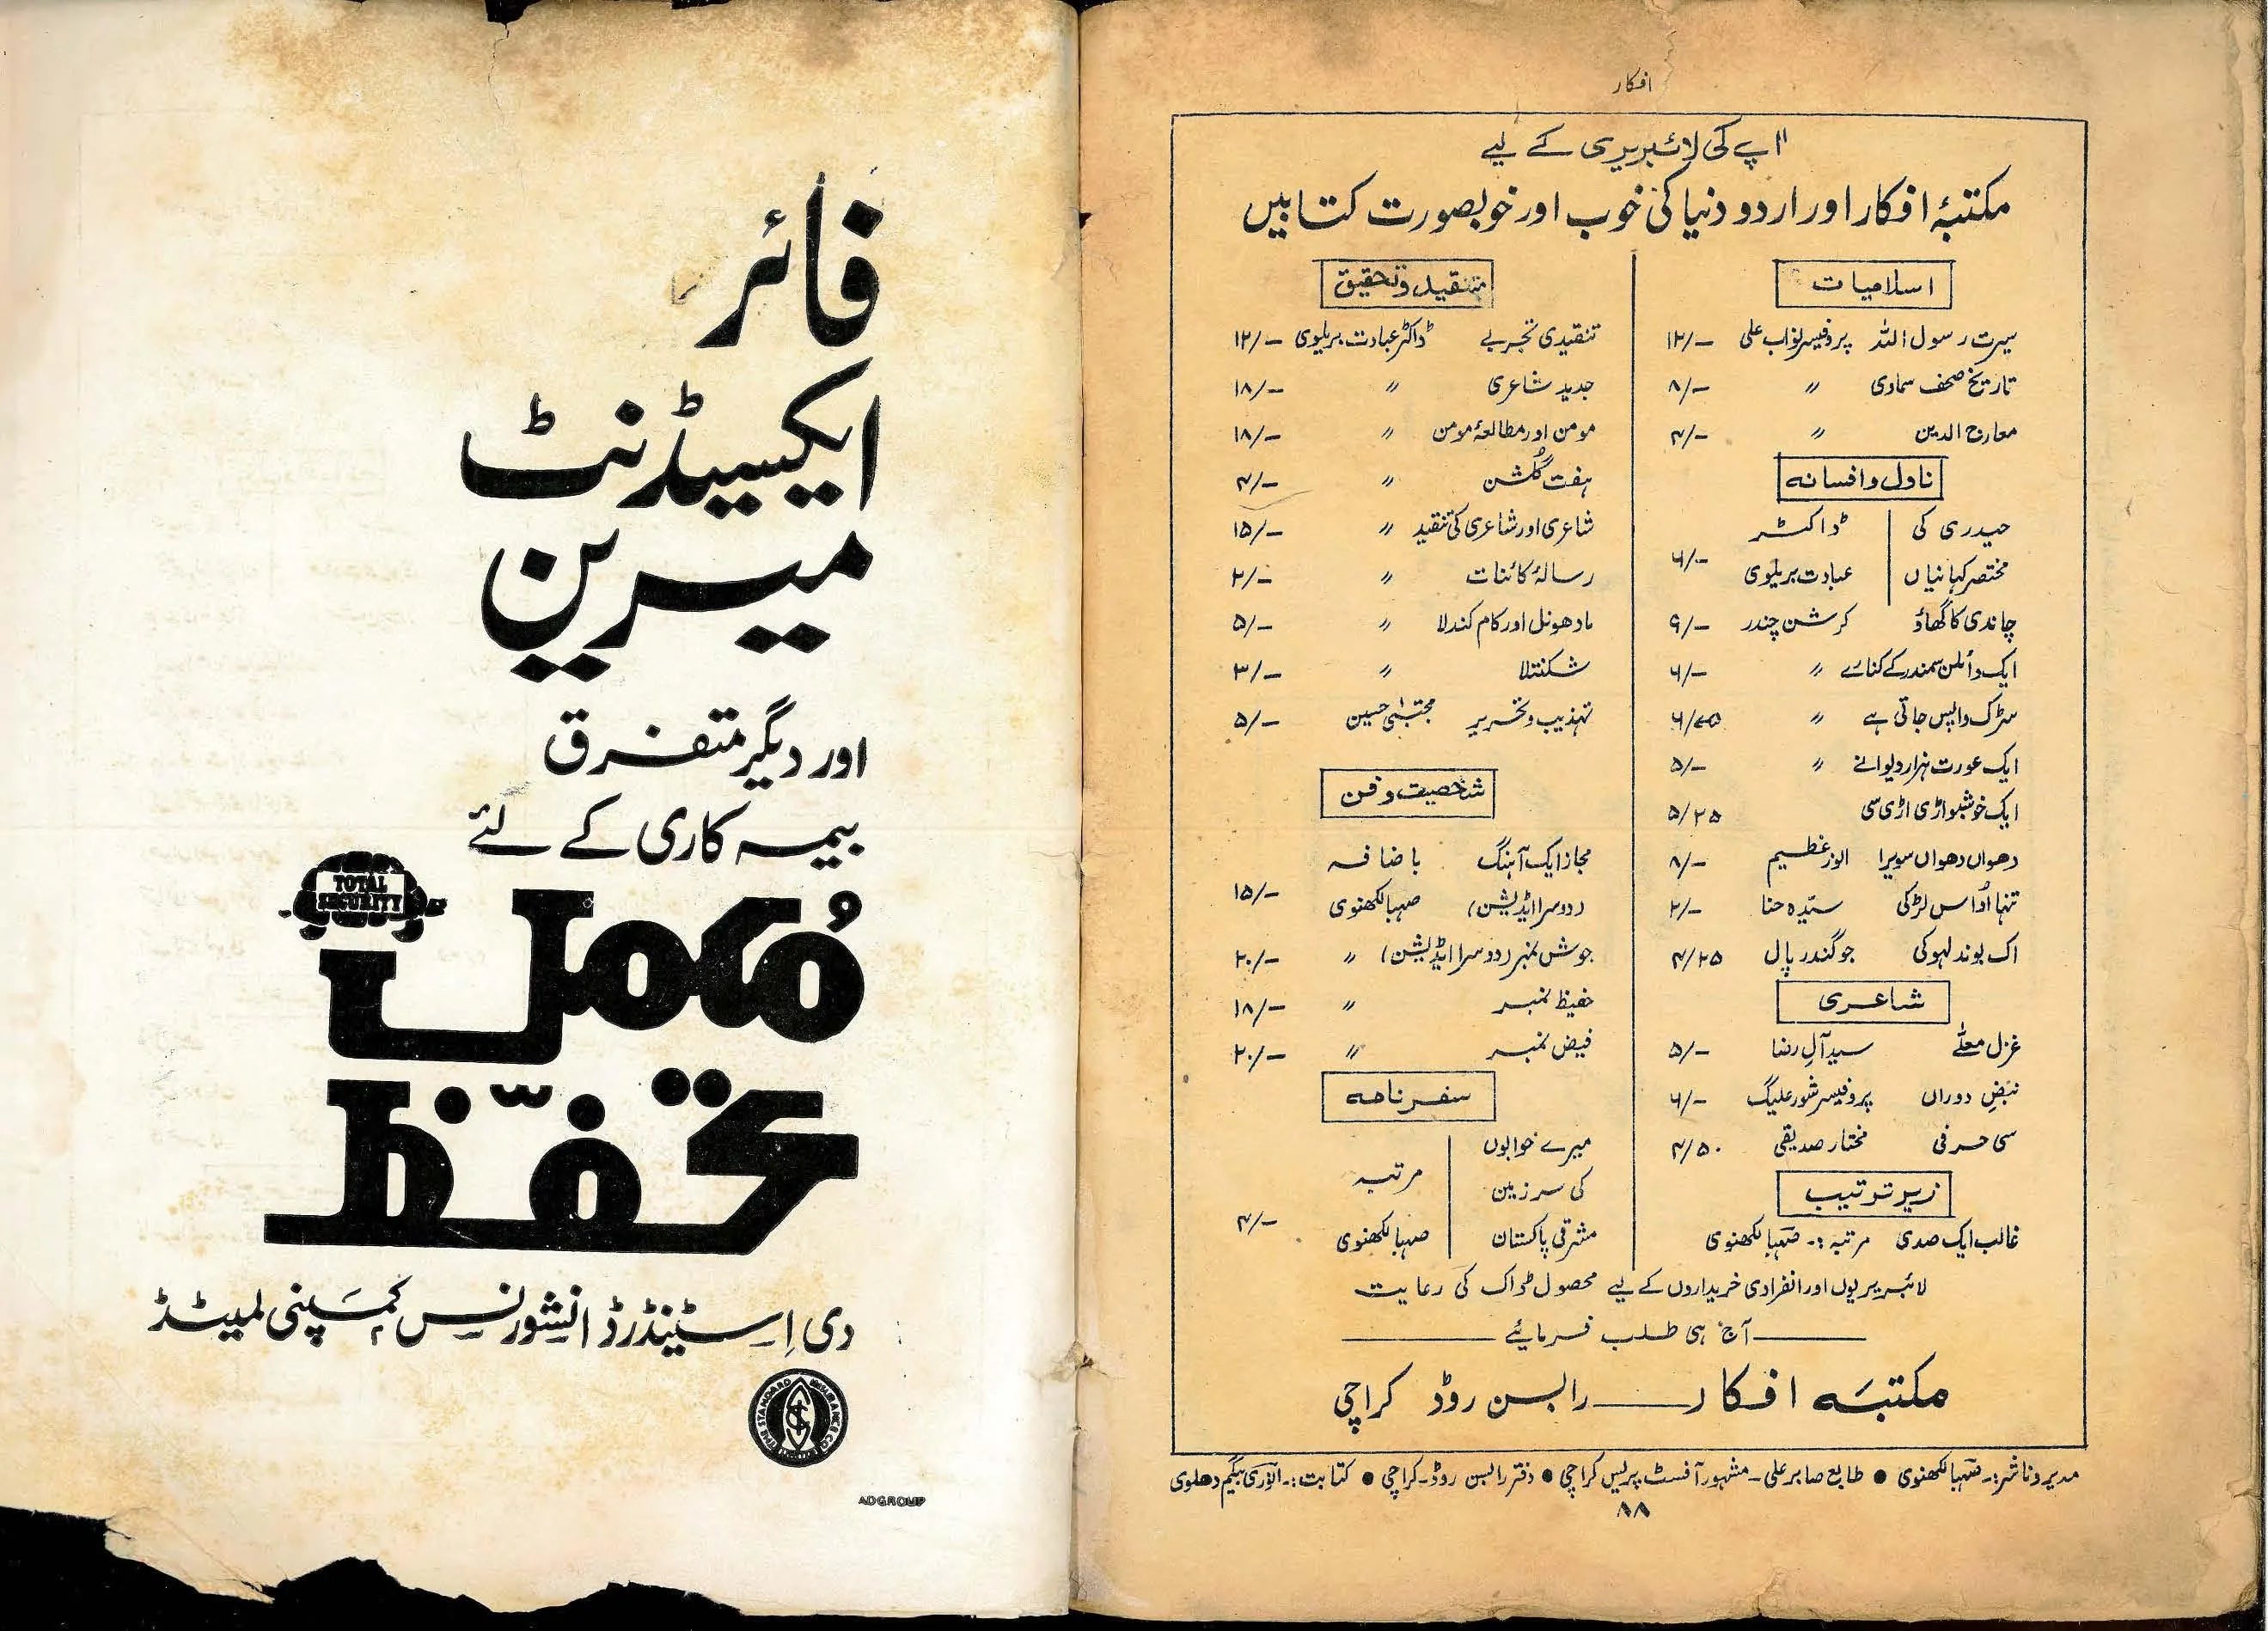 افکار
آپ کی لائبریری کے لیے
مکتبۂ افکار اور اردو دنیا کی خوب اور خوبصورت کتابیں
اسلامیات
سیرت رسول اللہ پروفیسر نواب علی ۱۲/-
تاریخ صحف سماوی 〃 ۸/-
معارج الدین 〃 ۴/-
ناول و افسانہ
حیدری کی ڈاکٹر
مختصر کہانیاں عبادت بریلوی ۶/-
چاندی کا گھاؤ کرشن چندر ۹/-
ایک وائلن سمندر کے کنارے 〃 ۶/-
سڑک واپس جاتی ہے 〃 ۶/۷۵
ایک عورت ہزار دیوانے 〃 ۵/-
ایک خوشبو اڑی اڑی سی ۵/۲۵
دھواں دھواں سویرا انور عظیم ۸/-
تنہا اُداس لڑکی سیّدہ حنا ۲/-
اک بوند لہو کی جوگندر پال ۴/۲۵
شاعری
غزل معلّٰے سید آلِ رضا ۵/-
نبضِ دوراں پروفیسر شور علیگ ۶/-
سی حرفی مختار صدیقی ۴/۵۰
زیر ترتیب
غالب ایک صدی مرتبہ:۔ صہبا لکھنوی
تنقید و تحقیق
تنقیدی تجربے ڈاکٹر عبادت بریلوی ۱۲/-
جدید شاعری 〃 ۱۸/-
مومن اور مطالعۂ مومن 〃 ۱۸/-
ہفت گلشن 〃 ۴/-
شاعری اور شاعری کی تنقید 〃 ۱۵/-
رسالۂ کائنات 〃 ۲/-
مادھونل اور کام کندلا 〃 ۵/-
شکنتلا 〃 ۳/-
تہذیب و تحریر مجتبیٰ حسین ۵/-
شخصیت و فن
مجاز ایک آہنگ باضافہ
(دوسرا ایڈیشن) صہبا لکھنوی ۱۵/-
جوش نمبر (دوسرا ایڈیشن) 〃 ۲۰/-
حفیظ نمبر 〃 ۱۸/-
فیض نمبر 〃 ۲۰/-
سفرنامہ
میرے خوابوں
کی سرزمین مرتبہ
مشرقی پاکستان صہبا لکھنوی ۴/-
لائبریریوں اور انفرادی خریداروں کے لیے محصول ڈاک کی رعایت
آج ہی طلب فرمائیے
مکتبہ افکار ــــ رابسن روڈ کراچی
مدیر و ناشر:۔ صہبا لکھنوی ● طابع صابر علی۔ مشہور آفسٹ پریس کراچی ● دفتر رابسن روڈ۔ کراچی ● کتابت:۔ انوری بیگم دھلوی
۸۸
فائر
ایکسیڈنٹ
میرین
اور دیگر متفرق
بیمہ کاری کے لئے
TOTAL
SECURITY
مُکمل
تحفّظ
دی اِسٹینڈرڈ انشورنس کمپنی لمیٹڈ
THE STANDARD INSURANCE CO. LIMITED
ADGROUP